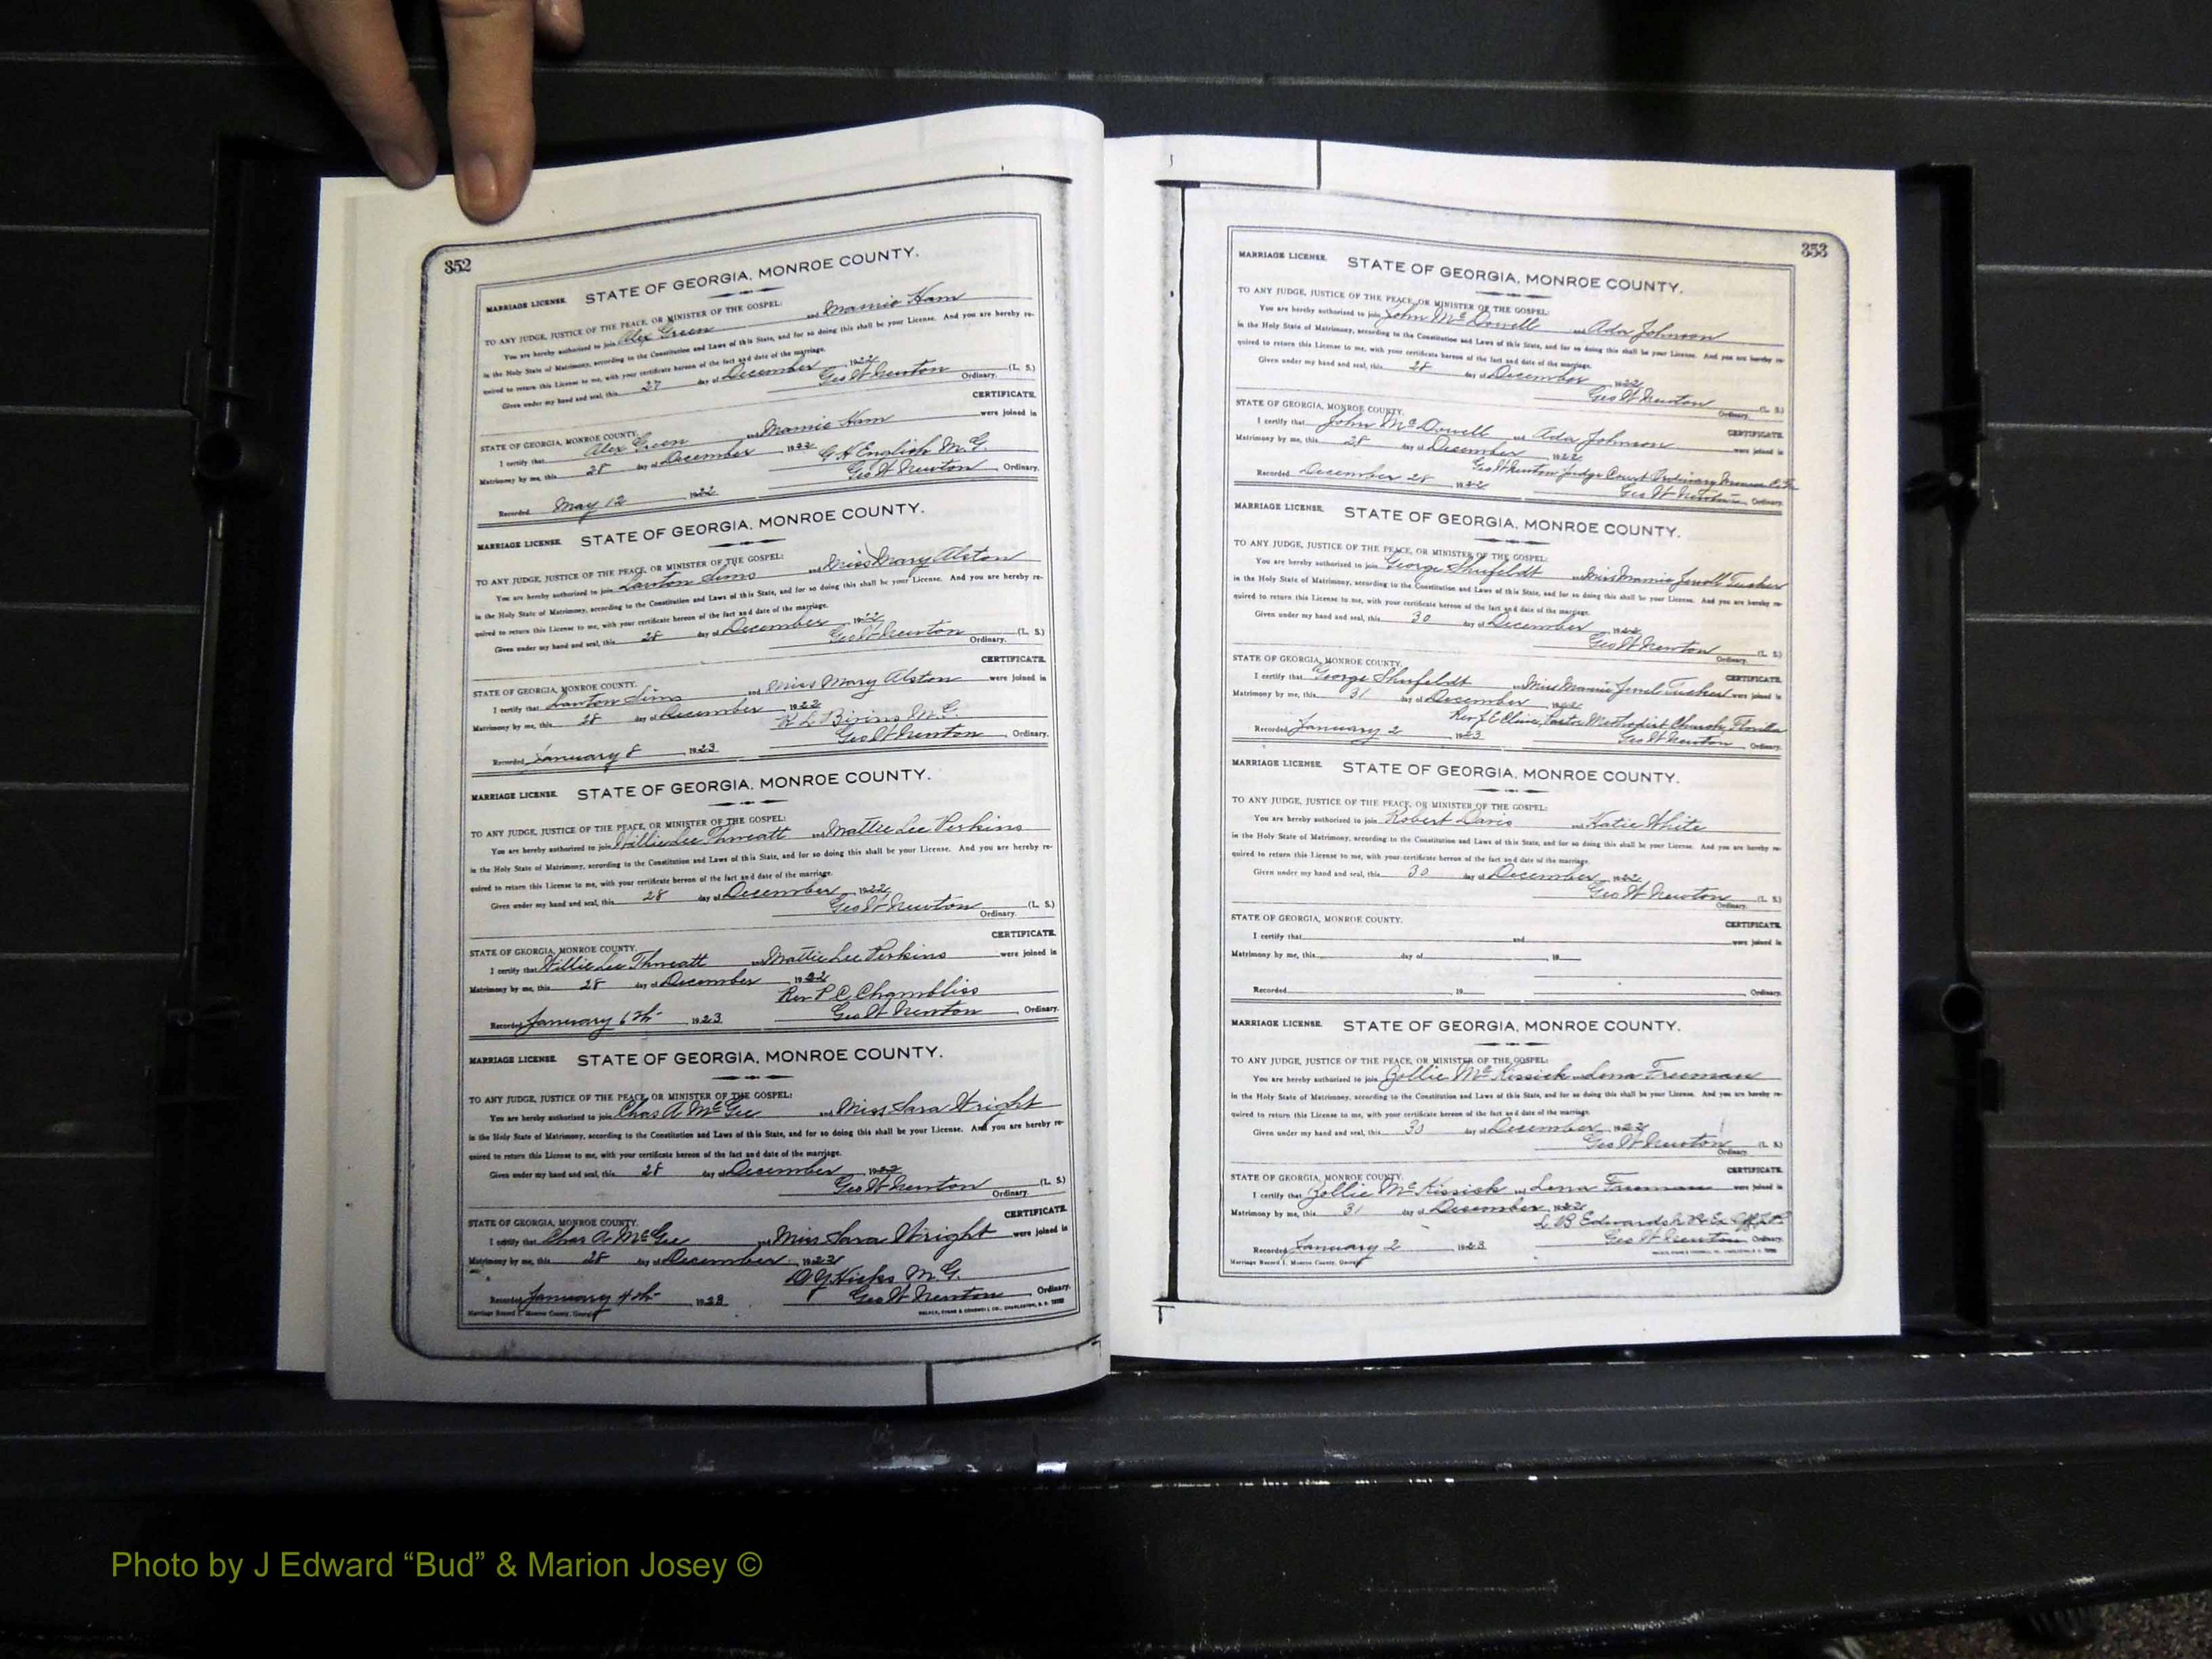 352
MARRIAGE LICENSE. STATE OF GEORGIA, MONROE COUNTY.
TO ANY JUDGE, JUSTICE OF THE PEACE, OR MINISTER OF THE GOSPEL:
You are hereby authorized to join Alex Green and Mamie Ham
in the Holy State of Matrimony, according to the Constitution and Laws of this State, and for so doing this shall be your License. And you are hereby re-
quired to return this License to me, with your certificate hereon of the fact and date of the marriage.
Given under my hand and seal, this 27 day of December, 1922
Geo W Newton (L. S.)
Ordinary.
CERTIFICATE.
STATE OF GEORGIA, MONROE COUNTY.
I certify that Alex Green and Mamie Ham were joined in
Matrimony by me, this 28 day of December, 1922
G H English M.G.
Recorded May 12 1922 Geo W Newton Ordinary.
MARRIAGE LICENSE. STATE OF GEORGIA, MONROE COUNTY.
TO ANY JUDGE, JUSTICE OF THE PEACE, OR MINISTER OF THE GOSPEL:
You are hereby authorized to join Lawton Sims and Miss Mary Alston
in the Holy State of Matrimony, according to the Constitution and Laws of this State, and for so doing this shall be your License. And you are hereby re-
quired to return this License to me, with your certificate hereon of the fact and date of the marriage.
Given under my hand and seal, this 28 day of December, 1922
Geo W Newton (L. S.)
Ordinary.
CERTIFICATE.
STATE OF GEORGIA, MONROE COUNTY.
I certify that Lawton Sims and Miss Mary Alston were joined in
Matrimony by me, this 28 day of December, 1922
R L Bivins M.G.
Recorded January 8 1923 Geo W Newton Ordinary.
MARRIAGE LICENSE. STATE OF GEORGIA, MONROE COUNTY.
TO ANY JUDGE, JUSTICE OF THE PEACE, OR MINISTER OF THE GOSPEL:
You are hereby authorized to join Willie Lee Threatt and Mattie Lee Perkins
in the Holy State of Matrimony, according to the Constitution and Laws of this State, and for so doing this shall be your License. And you are hereby re-
quired to return this License to me, with your certificate hereon of the fact and date of the marriage.
Given under my hand and seal, this 28 day of December, 1922
Geo W Newton (L. S.)
Ordinary.
CERTIFICATE.
STATE OF GEORGIA, MONROE COUNTY.
I certify that Willie Lee Threatt and Mattie Lee Perkins were joined in
Matrimony by me, this 28 day of December, 1922
Rev P. C. Chambliss
Recorded January 6th 1923 Geo W Newton Ordinary.
MARRIAGE LICENSE. STATE OF GEORGIA, MONROE COUNTY.
TO ANY JUDGE, JUSTICE OF THE PEACE, OR MINISTER OF THE GOSPEL:
You are hereby authorized to join Chas A McGee and Miss Sara Wright
in the Holy State of Matrimony, according to the Constitution and Laws of this State, and for so doing this shall be your License. And you are hereby re-
quired to return this License to me, with your certificate hereon of the fact and date of the marriage.
Given under my hand and seal, this 28 day of December, 1922
Geo W Newton (L. S.)
Ordinary.
CERTIFICATE.
STATE OF GEORGIA, MONROE COUNTY.
I certify that Chas A McGee and Miss Sara Wright were joined in
Matrimony by me, this 28 day of December, 1922
Hicks M.G.
Recorded January 4th 1923 Geo W Newton Ordinary.
Marriage Record I. Monroe County, Georgia
353
MARRIAGE LICENSE. STATE OF GEORGIA, MONROE COUNTY.
TO ANY JUDGE, JUSTICE OF THE PEACE, OR MINISTER OF THE GOSPEL:
You are hereby authorized to join John McDowell and Ada Johnson
in the Holy State of Matrimony, according to the Constitution and Laws of this State, and for so doing this shall be your License. And you are hereby re-
quired to return this License to me, with your certificate hereon of the fact and date of the marriage.
Given under my hand and seal, this 28 day of December, 1922
Geo W Newton (L. S.)
Ordinary.
STATE OF GEORGIA, MONROE COUNTY. CERTIFICATE.
I certify that John McDowell and Ada Johnson were joined in
Matrimony by me, this 28 day of December, 1922
Geo W Newton Judge Court Ordinary Monroe Co Ga
Recorded December 28, 1922 Geo W Newton Ordinary.
MARRIAGE LICENSE. STATE OF GEORGIA, MONROE COUNTY.
TO ANY JUDGE, JUSTICE OF THE PEACE, OR MINISTER OF THE GOSPEL:
You are hereby authorized to join George Shufeldt and Miss Mamie Jewell Tucker
in the Holy State of Matrimony, according to the Constitution and Laws of this State, and for so doing this shall be your License. And you are hereby re-
quired to return this License to me, with your certificate hereon of the fact and date of the marriage.
Given under my hand and seal, this 30 day of December, 1922
Geo W Newton (L. S.)
Ordinary.
STATE OF GEORGIA, MONROE COUNTY. CERTIFICATE.
I certify that George Shufeldt and Miss Mamie Jewel Tucker were joined in
Matrimony by me, this 31 day of December, 1922
Rev J E Cline, Pastor Methodist Church, Flovilla
Recorded January 2 1923 Geo W Newton Ordinary.
MARRIAGE LICENSE. STATE OF GEORGIA, MONROE COUNTY.
TO ANY JUDGE, JUSTICE OF THE PEACE, OR MINISTER OF THE GOSPEL:
You are hereby authorized to join Robert Davis and Katie White
in the Holy State of Matrimony, according to the Constitution and Laws of this State, and for so doing this shall be your License. And you are hereby re-
quired to return this License to me, with your certificate hereon of the fact and date of the marriage.
Given under my hand and seal, this 30 day of December, 1922
Geo W Newton (L. S.)
Ordinary.
STATE OF GEORGIA, MONROE COUNTY. CERTIFICATE.
I certify that and were joined in
Matrimony by me, this day of , 19
Recorded 19 Ordinary.
MARRIAGE LICENSE. STATE OF GEORGIA, MONROE COUNTY.
TO ANY JUDGE, JUSTICE OF THE PEACE, OR MINISTER OF THE GOSPEL:
You are hereby authorized to join Zollie McKissick and Lena Freeman
in the Holy State of Matrimony, according to the Constitution and Laws of this State, and for so doing this shall be your License. And you are hereby re-
quired to return this License to me, with your certificate hereon of the fact and date of the marriage.
Given under my hand and seal, this 30 day of December, 1922
Geo W Newton (L. S.)
Ordinary.
STATE OF GEORGIA, MONROE COUNTY. CERTIFICATE.
I certify that Zollie McKissick and Lena Freeman were joined in
Matrimony by me, this 31 day of December, 1922
L B Edwards
Recorded January 2 1923 Geo W Newton Ordinary.
Marriage Record I. Monroe County, Georgia
Photo by J Edward “Bud” & Marion Josey ©